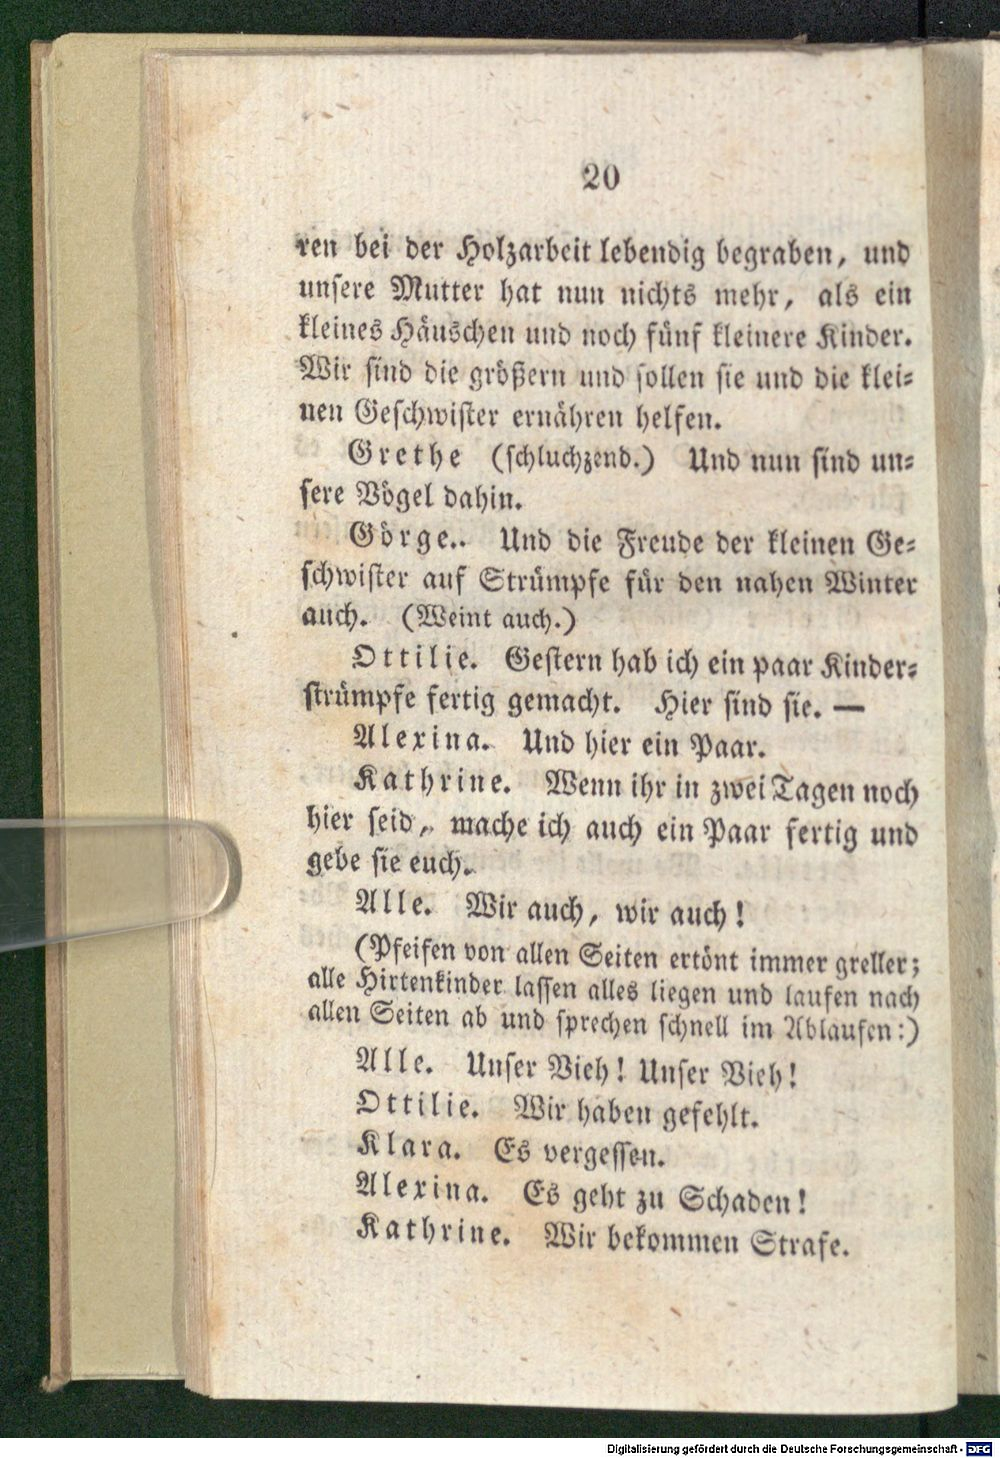 20
ren bei der Holzarbeit lebendig begraben, und
unsere Mutter hat nun nichts mehr, als ein
kleines Häuschen und noch fünf kleinere Kinder.
Wir sind die größern und sollen sie und die klei-
nen Geschwister ernähren helfen.
Grethe (schluchzend.) Und nun sind un-
sere Vögel dahin.
Görge.. Und die Freude der kleinen Ge-
schwister auf Strümpfe für den nahen Winter
auch. (Weint auch.)
Ottilie. Gestern hab ich ein paar Kinder-
strümpfe fertig gemacht. Hier sind sie. —
Alexina. Und hier ein Paar.
Kathrine. Wenn ihr in zwei Tagen noch
hier seid, mache ich auch ein Paar fertig und
gebe sie euch.
Alle. Wir auch, wir auch!
(Pfeifen von allen Seiten ertönt immer greller;
alle Hirtenkinder lassen alles liegen und laufen nach
allen Seiten ab und sprechen schnell im Ablaufen:)
Alle. Unser Vieh! Unser Vieh!
Ottilie. Wir haben gefehlt.
Klara. Es vergessen.
Alexina. Es geht zu Schaden!
Kathrine. Wir bekommen Strafe.
Digitalisierung gefördert durch die Deutsche Forschungsgemeinschaft - DFG